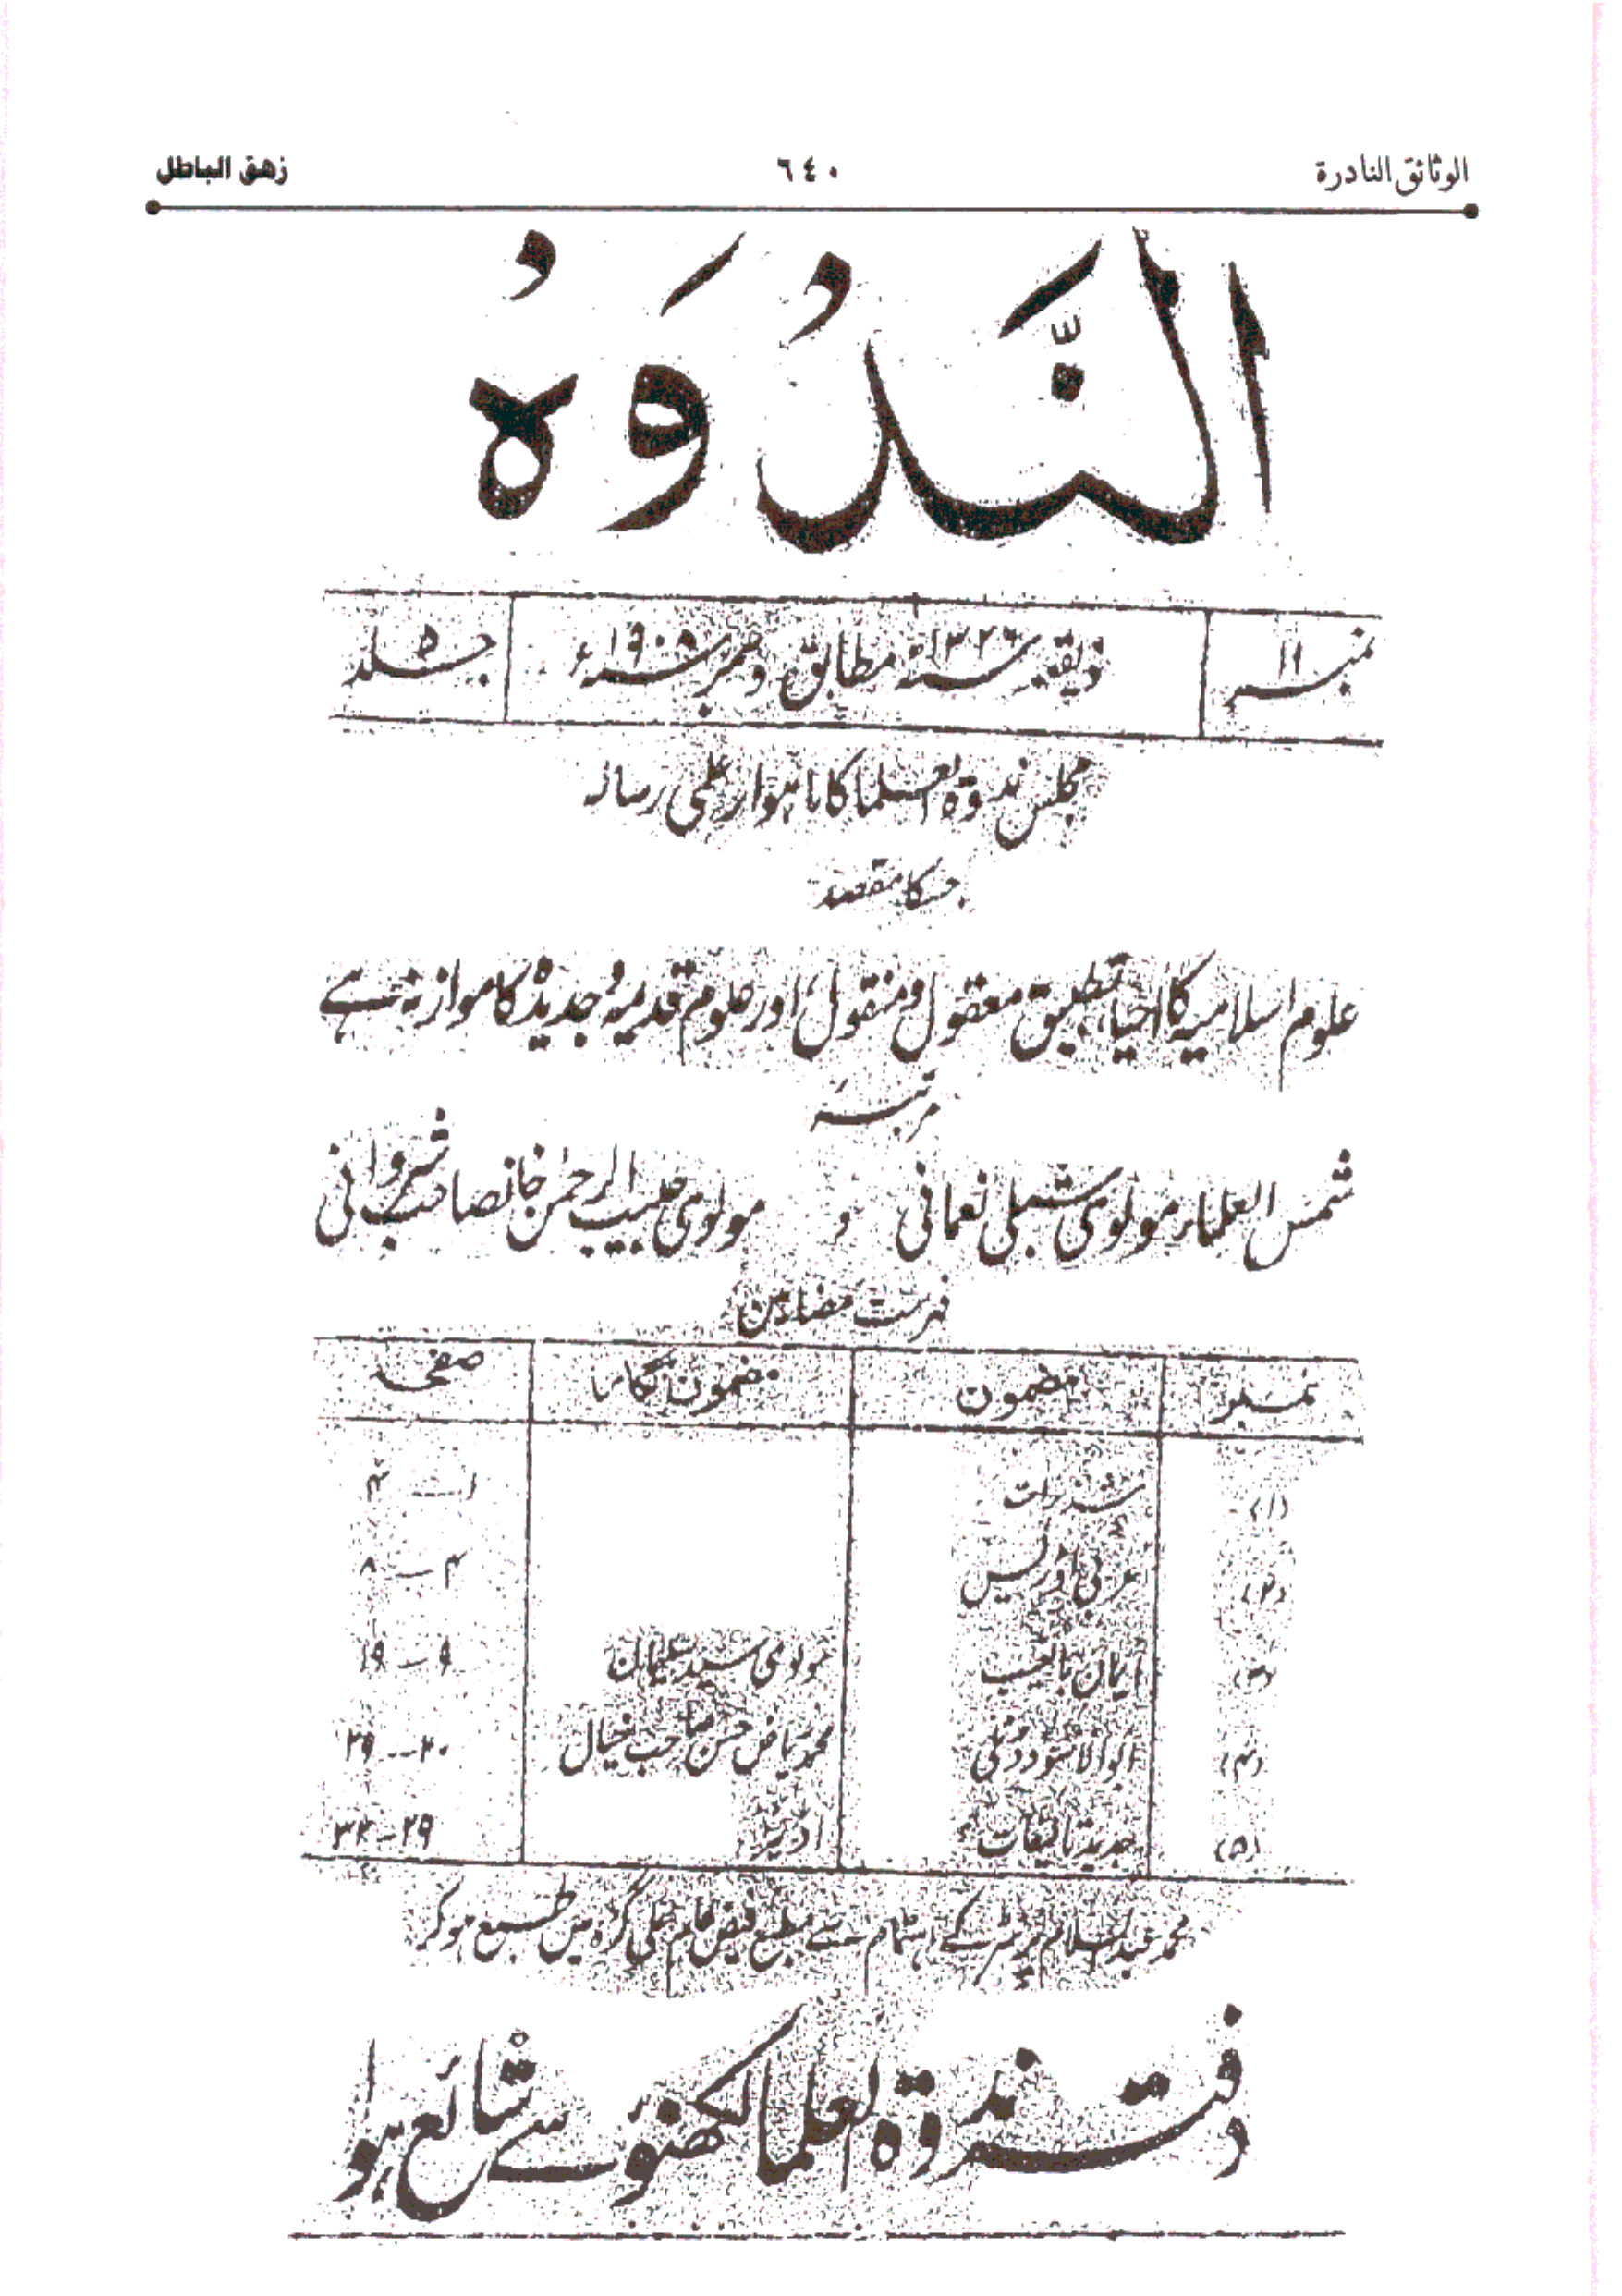 الوثائق النادرة ٦٤٠ زهق الباطل
النَّدْوَہُ
نمبر ۱۱ ذیقعدہ سنہ ۱۳۲۶ مطابق دسمبر سنہ ۱۹۰۸ء جلد ۵
مجلس ندوۃ العلما کا ماہوار علمی رسالہ
جسکا مقصد
علوم اسلامیہ کا احیا، تطبیق معقول و منقول، اور علوم قدیمہ و جدیدہ کا موازنہ ہے
مرتبہ
شمس العلماء مولوی شبلی نعمانی و مولوی حبیب الرحمٰن خانصاحب شروانی
فہرست مضامین
نمبر مضمون مضمون نگار صفحہ
(۱) شذرات ۱ — ۴
(۲) عربی اور ۴ — ۸
(۳) ایمان بالغیب مولوی سید سلیمان ۹ — ۱۹
(۴) ابوالاسود دوئلی محمد ریاض حسن صاحب خیال ۲۰ — ۲۹
(۵) جدید تالیفات اڈیٹر ۲۹ — ۳۲
محمد عبدالسلام پرنٹر کے اہتمام سے مطبع فیض عام علی گڑہ میں طبع ہوکر
دفتر ندوۃ العلما لکھنؤ سے شائع ہوا